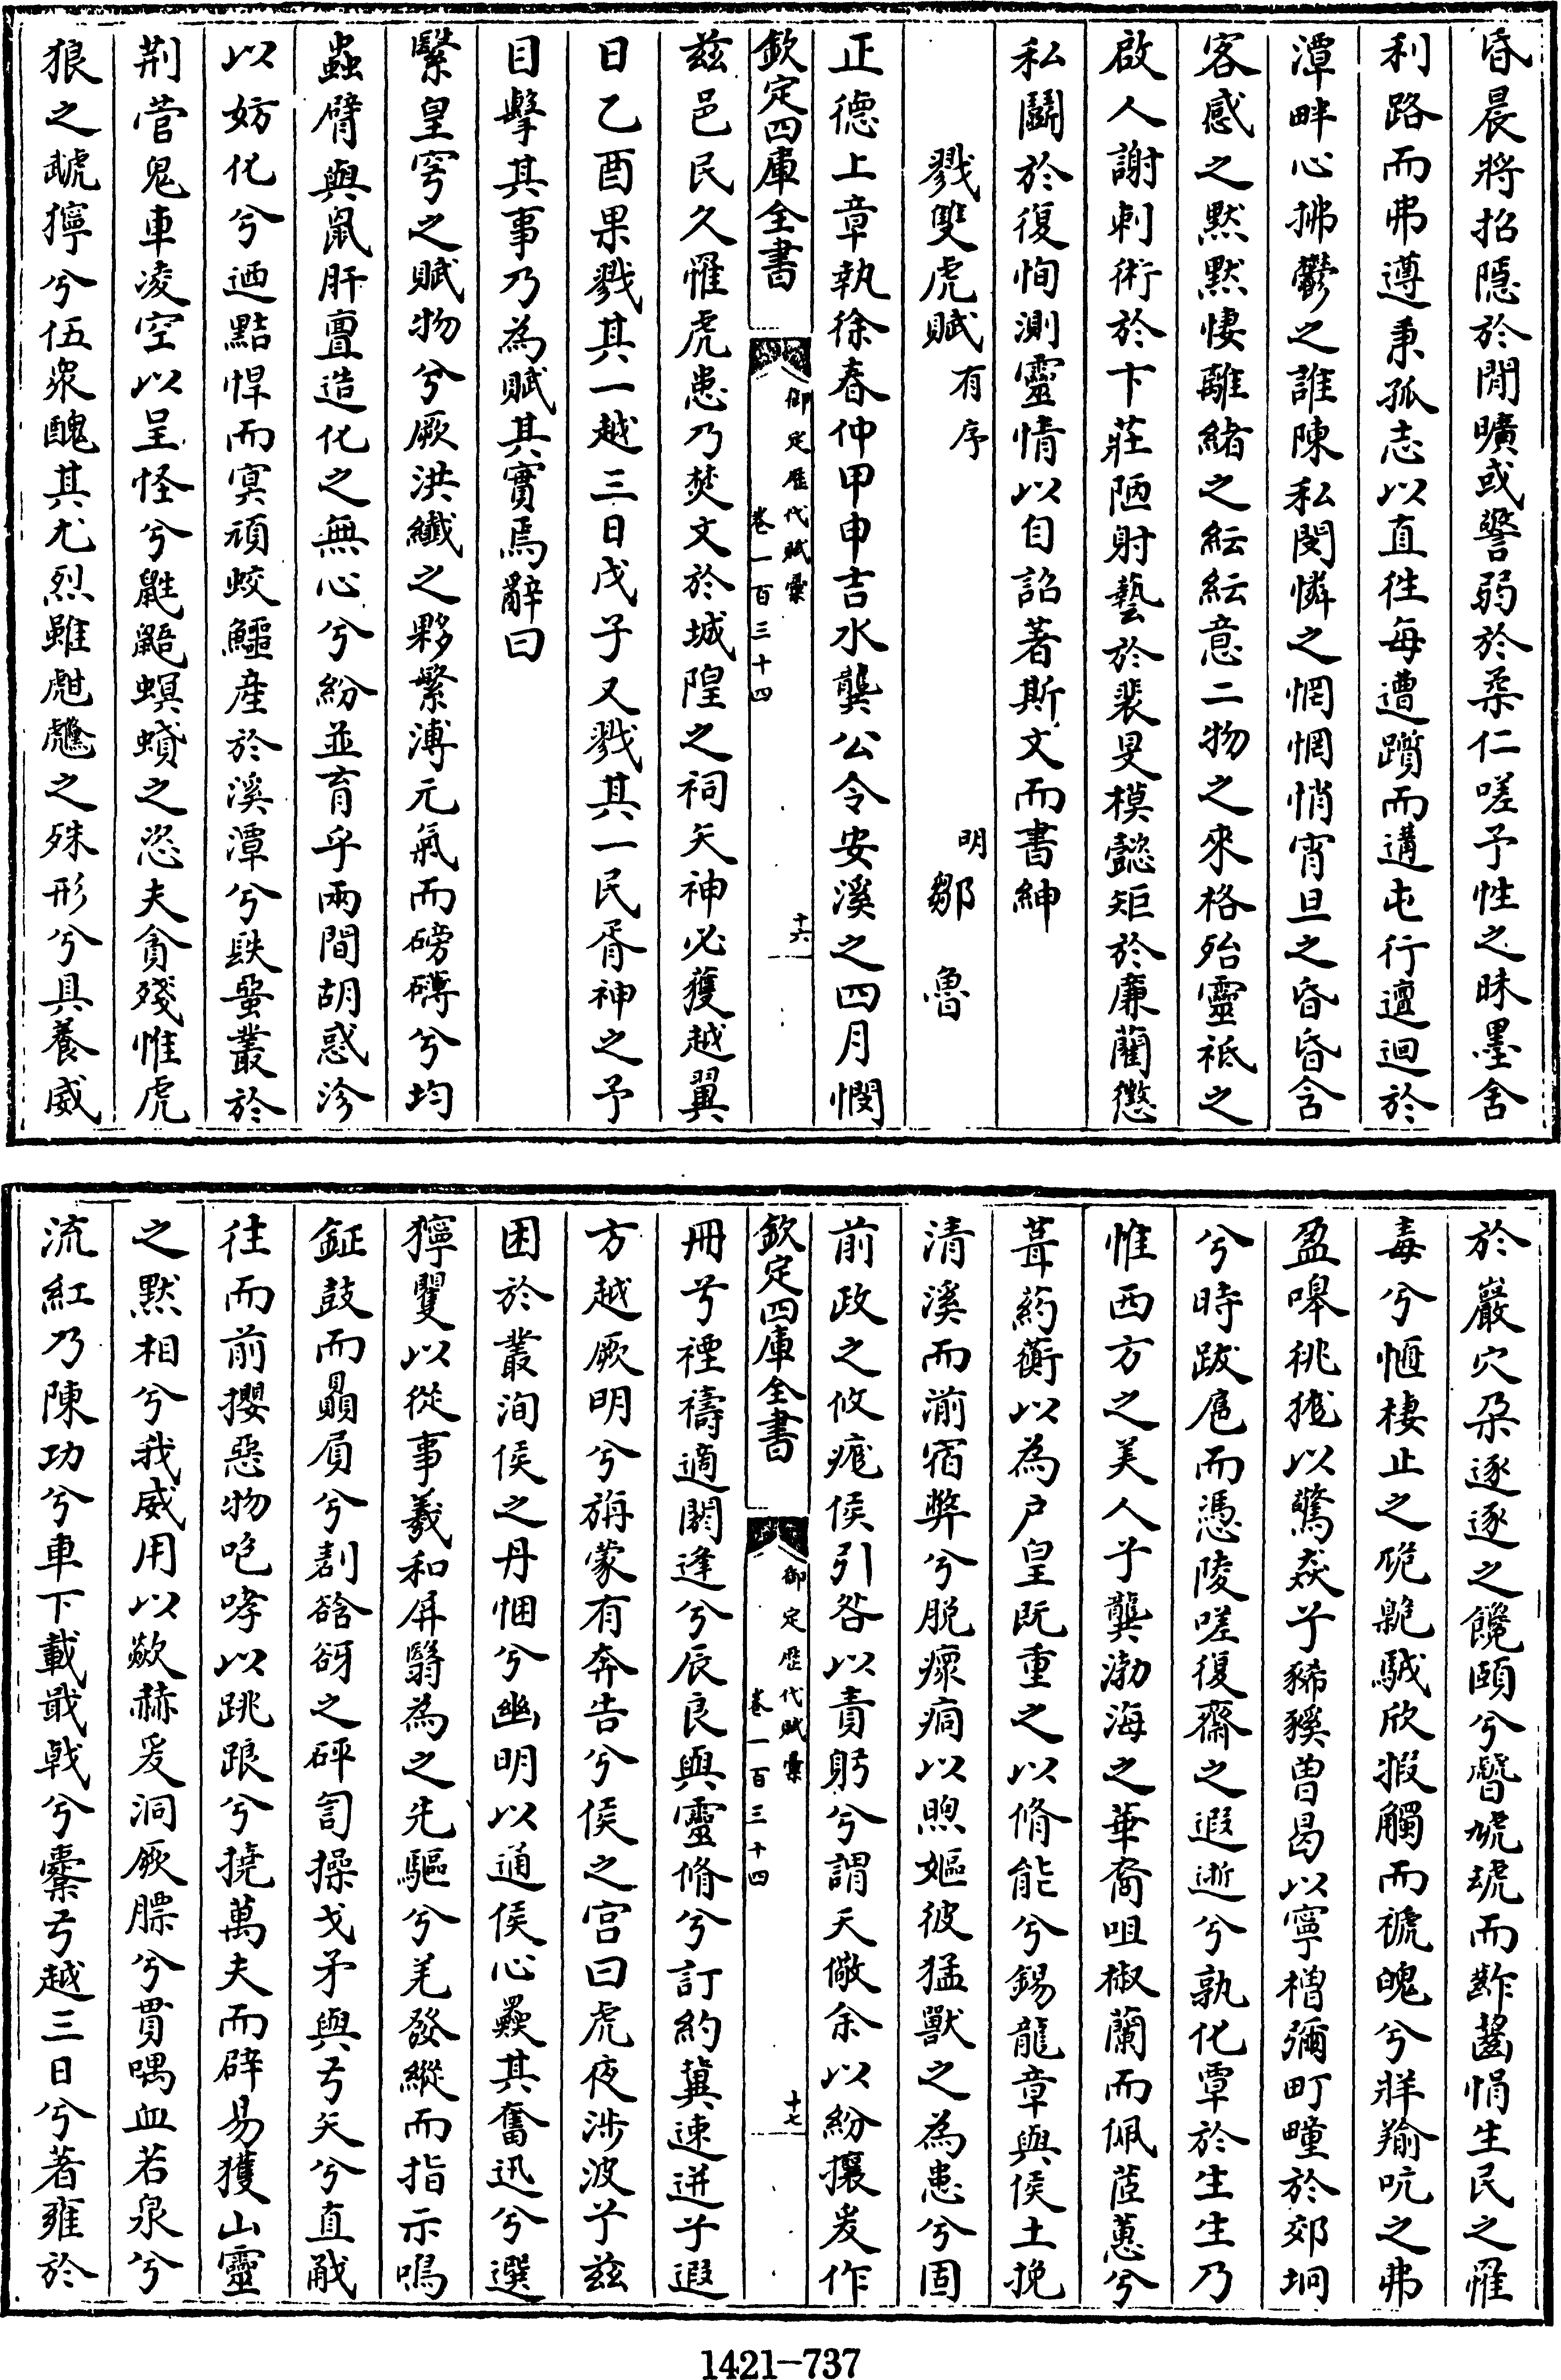 昏晨將招隱於閒曠或警弱於柔仁嗟予性之昧墨舍
利路而弗遵秉孤志以直徃每遭躓而遘屯行邅迴於
潭畔心拂鬱之誰陳私閔憐之惘惘悄宵旦之昏昏含
客感之黙黙悽離緒之紜紜意二物之來格殆靈祗之
啟人謝刺術於卞莊陋射藝於裴旻模懿矩於廉藺懲
私鬭於復恂測靈情以自詔著斯文而書紳
戮雙虎賦有序
明鄒魯
正德上章執徐春仲甲申吉水龔公令安溪之四月憫
欽定四庫全書
御定歷代賦彙
卷一百三十四
十六
兹邑民久罹虎患乃焚文於城隍之祠矢神必獲越翼
日乙酉果戮其一越三日戊子又戮其一民胥神之予
目擊其事乃為賦其實焉辭曰
繄皇穹之賦物兮厥洪纖之夥繁溥元氣而磅礡兮均
蟲臂與鼠肝亶造化之無心兮紛並育乎兩間胡惑沴
以妨化兮迺㸃悍而㝠頑蛟鱷産於溪潭兮镻蛩叢於
荆菅鬼車凌空以呈怪兮鼪鼯螟蟘之恣夫貪殘惟虎
狼之虣獰兮伍衆醜其尤烈雖彪虪之殊形兮具養威
於巖穴朶逐逐之饞頤兮瞀虓虓而齚齧悁生民之罹
毒兮恇棲止之卼臲駴欣猳觸而褫魄兮牂羭吭之弗
盈嘷狣㹶以驚猋兮豨豯曽曷以寧橧彌町疃於郊坰
兮時跋扈而憑陵嗟復齋之遐逝兮孰化覃於生生乃
惟西方之美人兮龔渤海之華裔咀椒蘭而佩茝蕙兮
葺葯蘅以為户皇既重之以脩能兮錫龍章與侯土挽
清溪而湔宿弊兮脱瘝痌以煦嫗彼猛獸之為患兮固
前政之攸疵侯引咎以責躬兮謂天儆余以紛攘爰作
欽定四庫全書
御定歷代賦彙
卷一百三十四
十七
冊兮禋禱適閼逢兮辰良與靈脩兮訂約冀速迸兮遐
方越厥明兮旃蒙有奔告兮侯之宫曰虎夜涉波兮兹
困於叢洵侯之丹悃兮幽明以通侯心㒹其奮迅兮選
獰矍以從事羲和屏翳為之先驅兮羌發縱而指示鳴
鉦鼓而贔屓兮剨谽谺之砰訇操戈矛與弓矢兮直戫
往而前攖惡物咆哮以跳踉兮撓萬夫而辟易獲山靈
之黙相兮我威用以歘赫爰洞厥膘兮貫喁血若泉兮
流紅乃陳功兮車下載戢㦸兮櫜弓越三日兮著雍於
1421—737